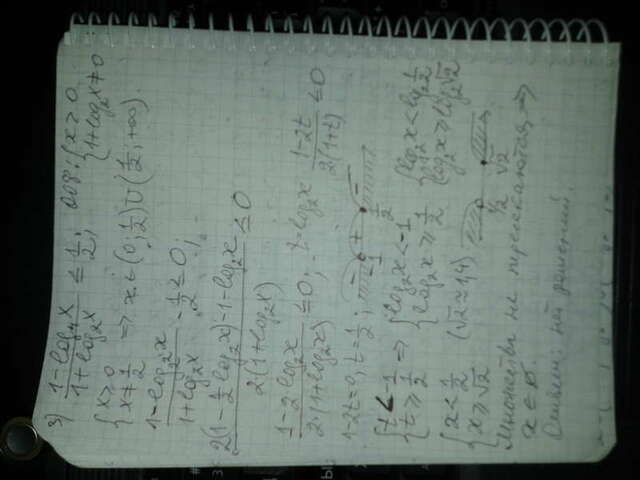 3) (1-log₄x)/(1+log₂x) ≤ 1/2; ОДЗ: {x>0 {1+log₂x≠0
{x>0 {x≠1/2 => x∈(0;1/2)∪(1/2;+∞).
(1-log₄x)/(1+log₂x) - 1/2 ≤ 0;
(2(1-1/2 log₂x)-1-log₂x)/(2(1+log₂x)) ≤ 0
(1-2log₂x)/(2(1+log₂x)) ≤ 0; t=log₂x (1-2t)/(2(1+t)) ≤ 0
1-2t=0, t=1/2; - -1 + 1/2 -
{t<-1 {t≥1/2 => {log₂x<-1 {log₂x≥1/2 {log₂x<log₂ 1/2 {log₂x≥log₂√2
{x<1/2 {x≥√2 (√2≈1,4) 1/2 √2
Множества не пересекаются, =>
x∈∅.
Ответ: нет решений.